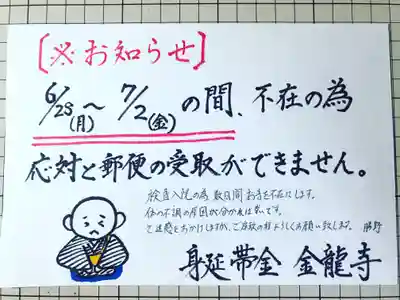 ［※お知らせ］
6/28(月)〜7/2(金)の間、不在の為
応対と郵便の受取ができません。
検査入院の為 数日間 お寺を不在にします。
体の不調の原因が分かれば幸いです。
ご迷惑をおかけしますが、ご容赦の程よろしくお願い致します。
身延帯金 金龍寺